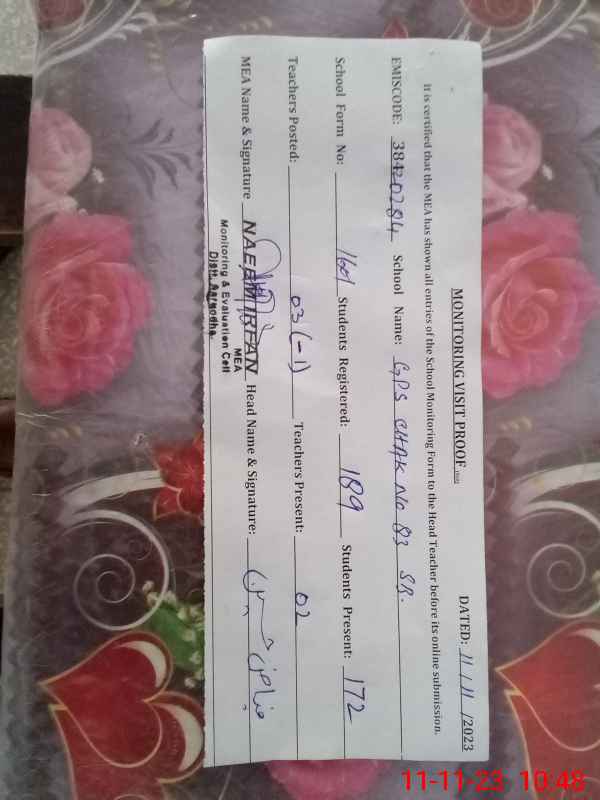 MONITORING VISIT PROOF
DATED: 11/11/2023
It is certified that the MEA has shown all entries of the School Monitoring Form to the Head Teacher before its online submission.
EMISCODE: 38420284 School Name: GPS CHAK No 83 SB.
School Form No: Students Registered: 189 Students Present: 172
Teachers Posted: 03(-1) Teachers Present: 02
MEA Name & Signature NAEEM IRFAN Head Name & Signature:
MEA
Monitoring & Evaluation Cell
Distt. Sargodha.
11-11-23 10:48